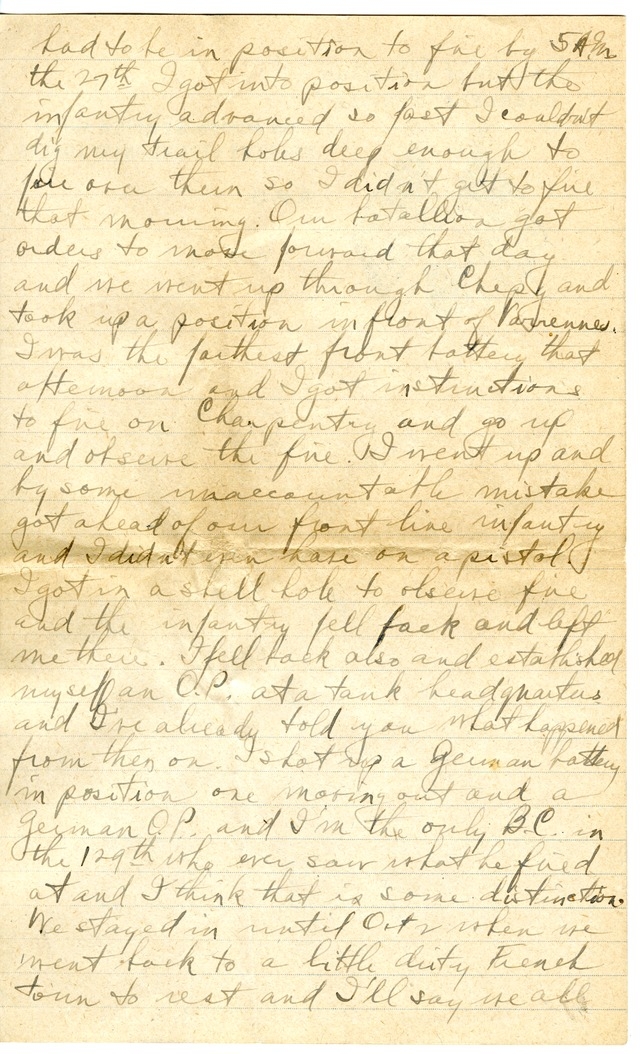 had to be in position to fire by 5 AM
the 27th I got into position but the
infantry advanced so fast I couldn't
dig my trail holes deep enough to
fire over them so I didn't get to fire
that morning. Our batallion got
orders to move forward that day
and we went up through Chepy and
took up a position in front of Varrennes.
I was the farthest front battery that
afternoon and I got instructions
to fire on Charpentry and go up
and observe the fire. I went up and
by some unaccountable mistake
got ahead of our front line infantry
and I didn't even have on a pistol.
I got in a shell hole to observe fire
and the infantry fell back and left
me there. I fell back also and established
myself an O.P. at a tank headquarters
and I've already told you what happened
from then on. I shot up a German battery
in position one moving out and a
German O.P. and I'm the only B.C. in
the 129th who ever saw what he fired
at and I think that is some distinction.
We stayed in until Oct 2 when we
went back to a little dirty French
town to rest and I'll say we all